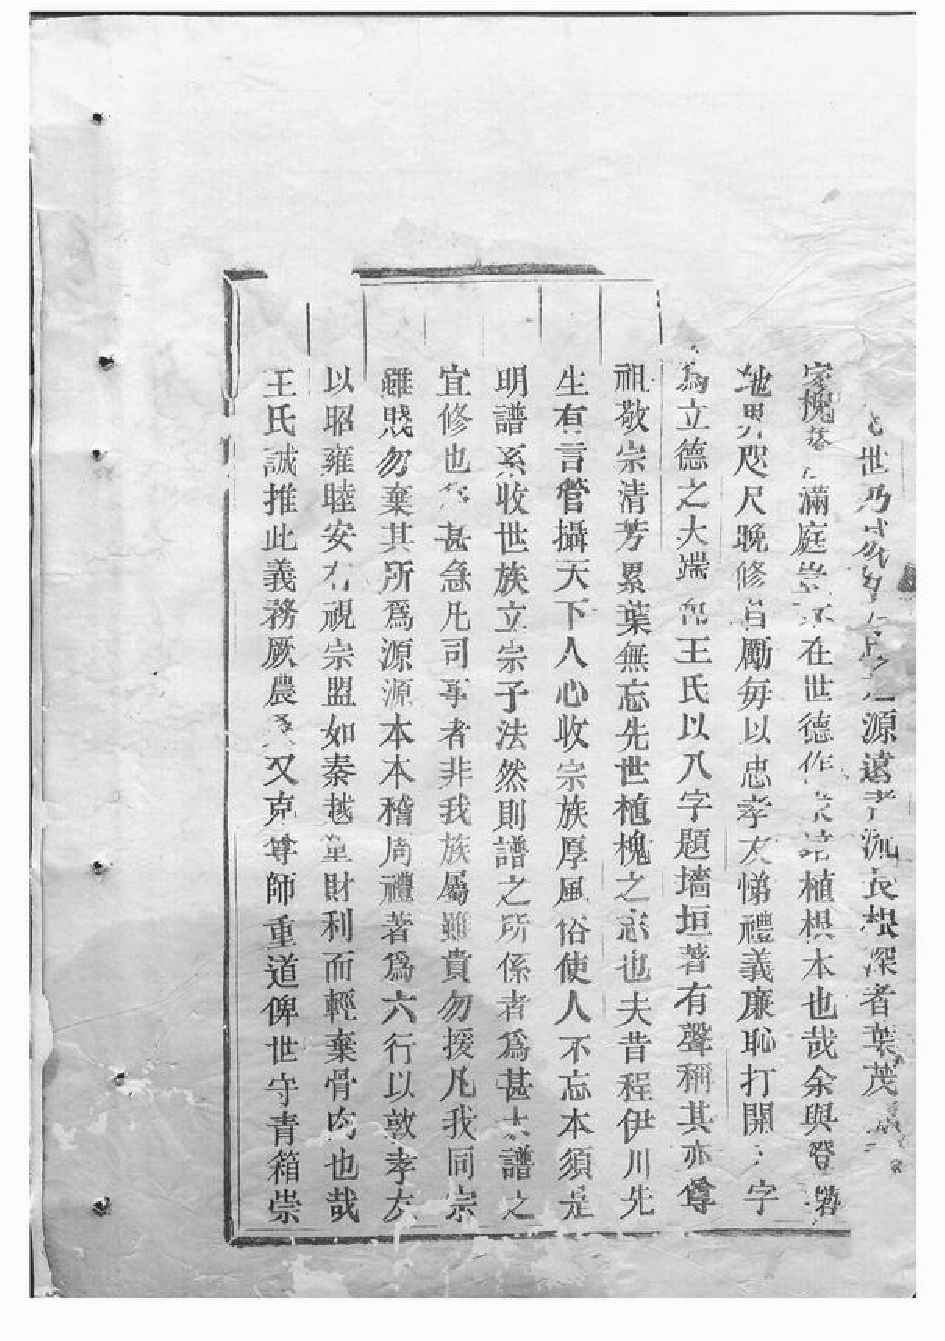 世乃源遠者流長根深者葉茂
家槐滿庭在世德作植根本也哉余與登
地界咫尺晚修自勵每以忠孝友悌禮義廉恥打開字
為立德之大端王氏以八字題墻垣著有聲稱其亦尊
祖敬宗清芳累葉無忘先世植槐之志也夫昔程伊川先
生有言管攝天下人心收宗族厚風俗使人不忘本須是
明譜系收世族立宗子法然則譜之所係者為甚大譜之
宜修也甚急凡司事者非我族屬雖貴勿援凡我同宗
雖賤勿棄其所爲源源本本稽周禮著爲六行以敦孝友
以昭雍睦安有視宗盟如秦越重財利而輕棄骨肉也哉
王氏誠推此義務厥農又克尊師重道俾世守青箱崇